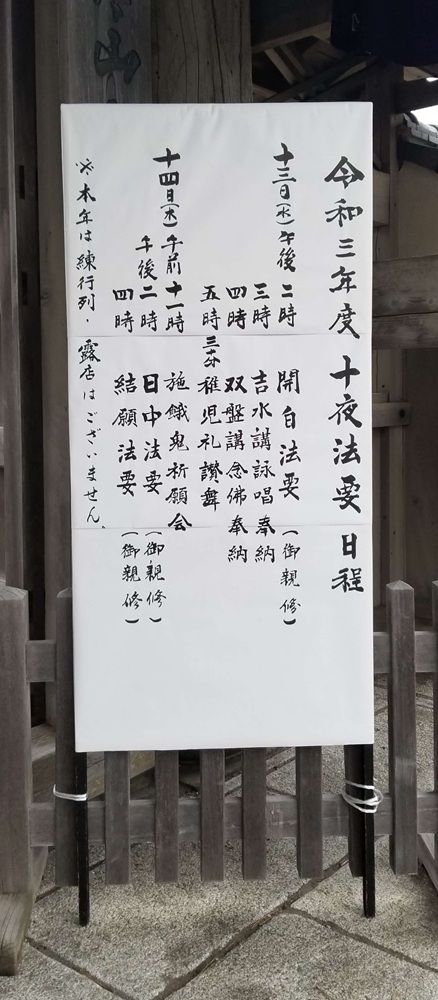 令和三年度 十夜法要 日程
十三日(水)午後 二時 開白法要(御親修)
三時 吉水講詠唱奉納
四時 双盤講念佛奉納
五時三十分 稚児礼讃舞
十四日(木)午前 十一時 施餓鬼祈願会
午後 二時 日中法要(御親修)
四時 結願法要(御親修)
※本年は練行列・露店はございません。
山